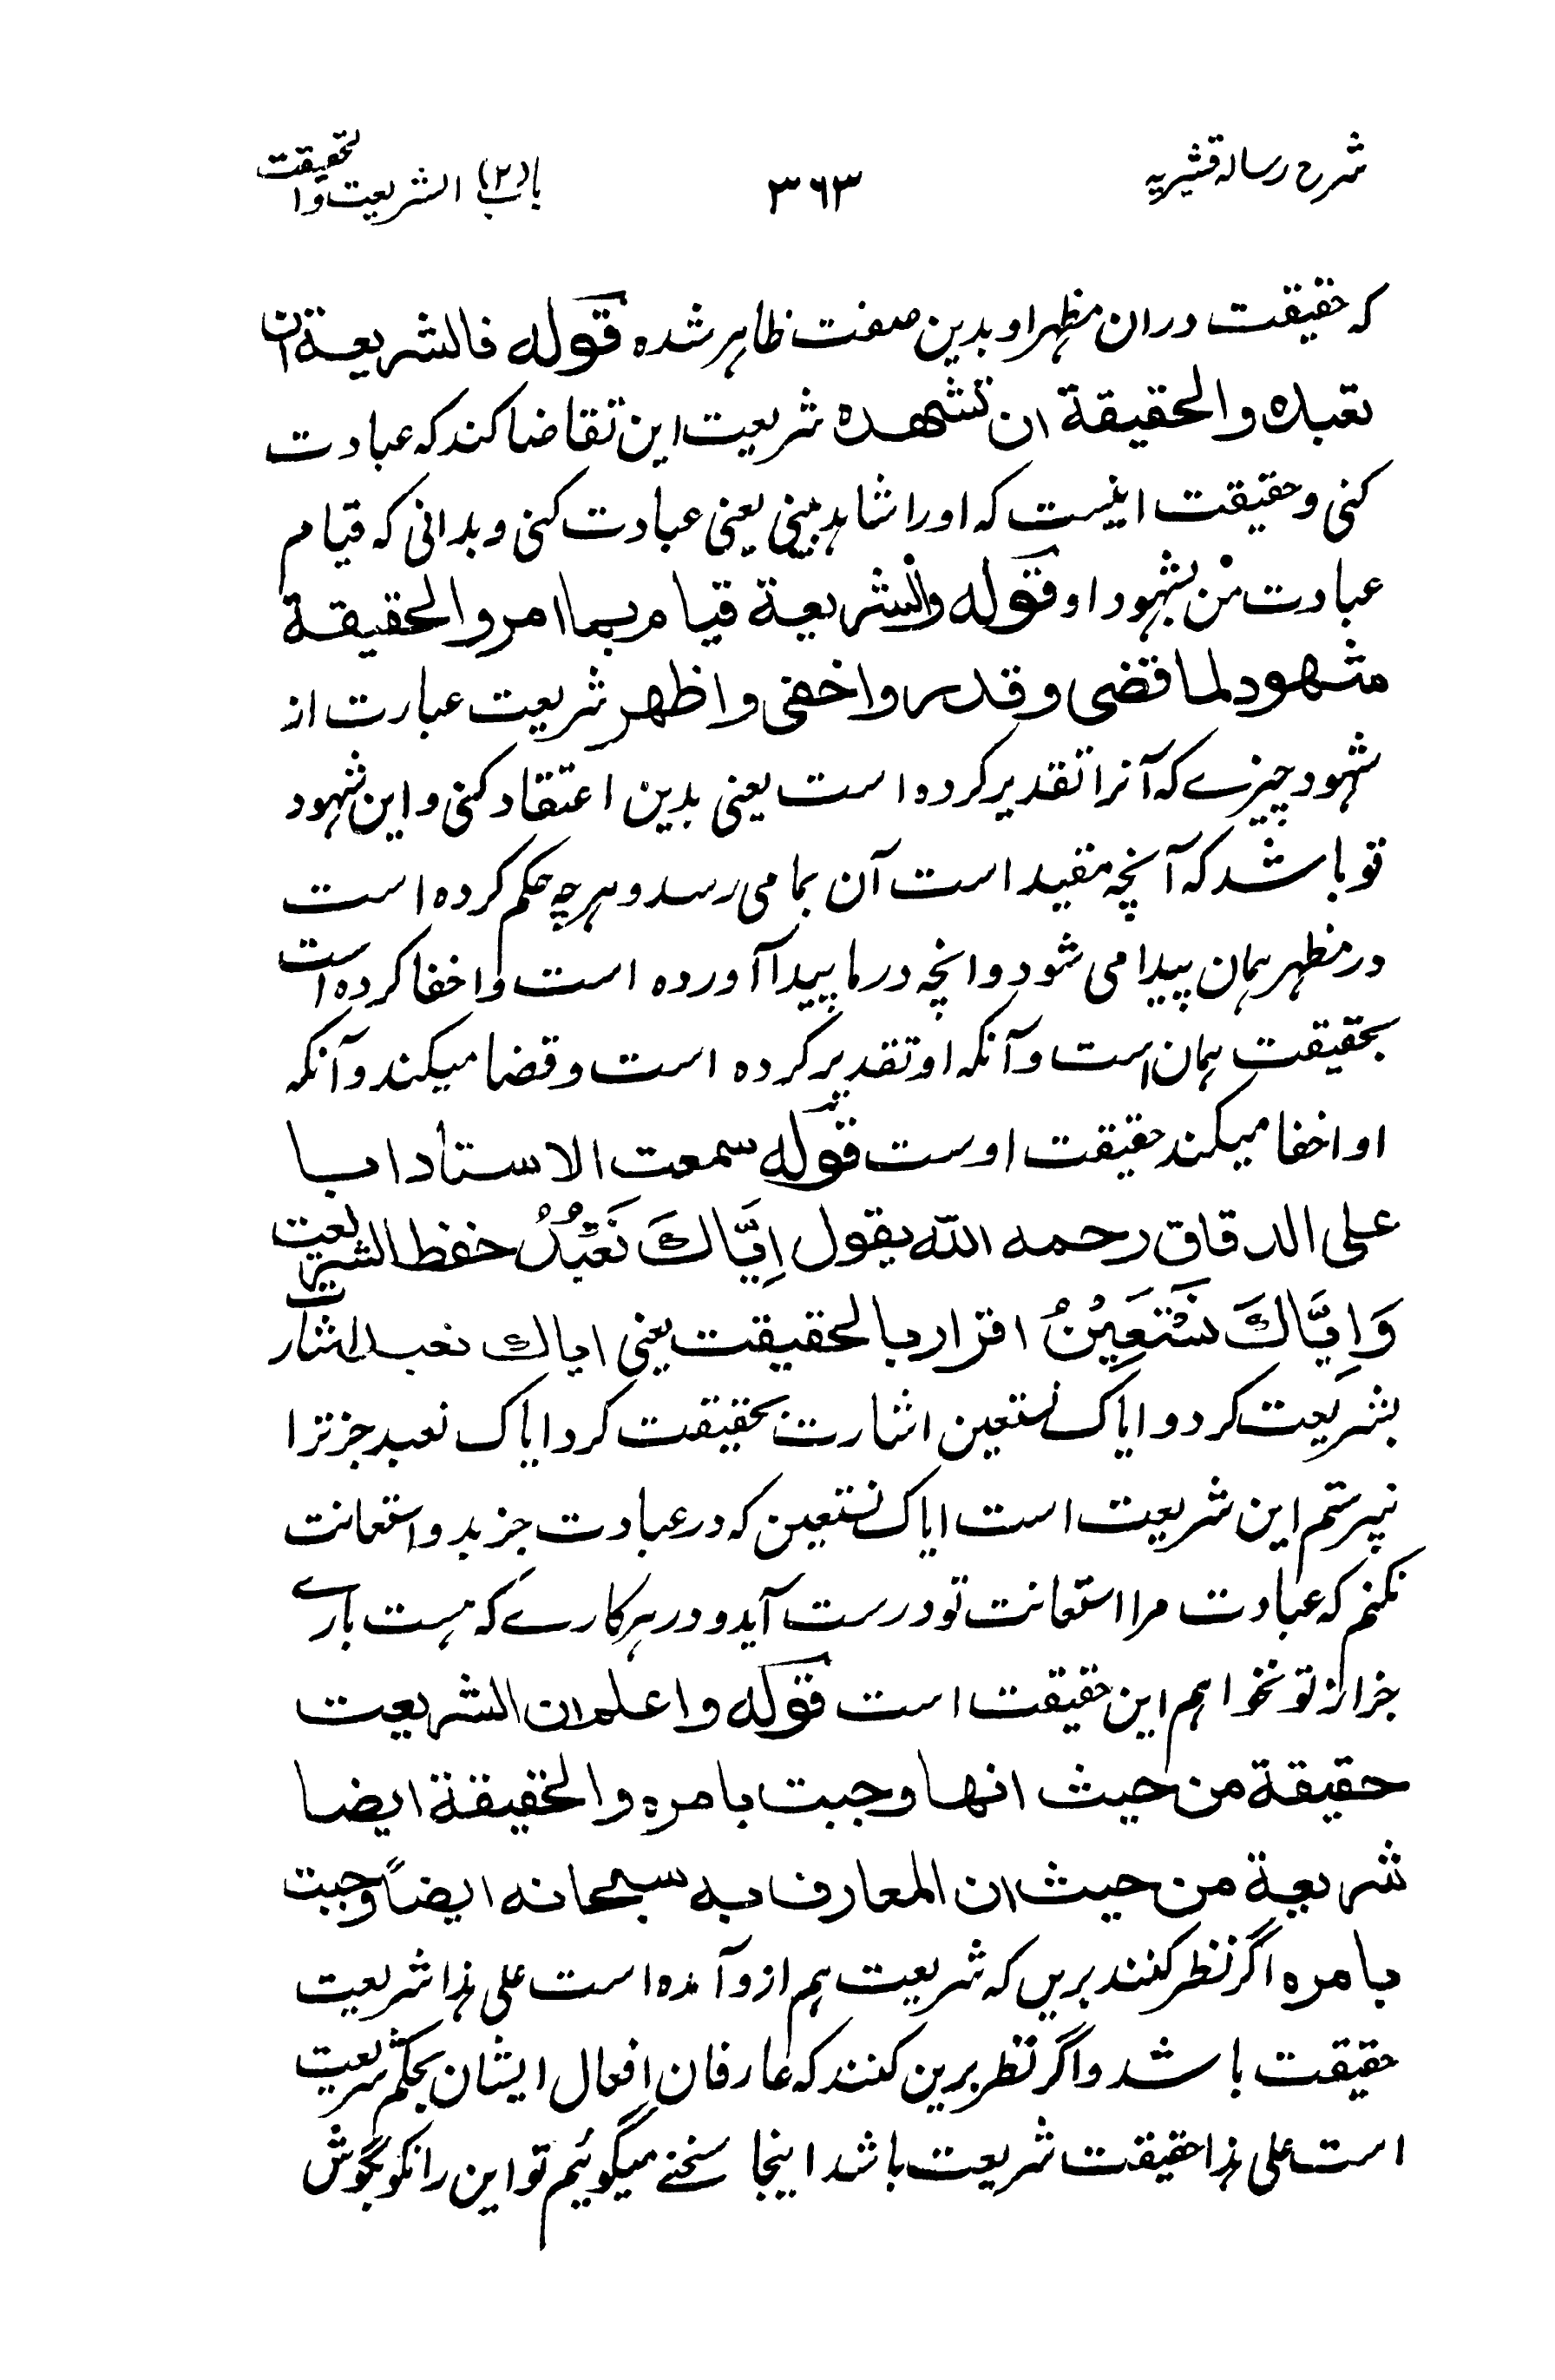 شرح رسالہ قشیریہ
۳۶۳
باب (۲) الشریعت والحقیقت
کہ حقیقت دران مظہر او بدین صفت ظاہر شدہ قوله فالشريعة ان
تعبده والحقيقة ان تشهده شریعت این تقاضا کند کہ عبادت
کنی و حقیقت اینست کہ او را شاہد بینی یعنی عبادت کنی و بدانی کہ قیام
عبادت من بشہود او قوله والشريعة قيام بما امر والحقيقة
مشهود لما قضى وقدر واخفى واظهر شریعت عبارت از
شہود چیزے کہ آنرا تقدیر کردہ است یعنی بدین اعتقاد کنی و این شہود
تو باشد کہ آنچہ مقید است آن بما می رسد و ہرچہ حکم کردہ است
در مظہر ہمان پیدا می شود و انچہ در ما پیدا آوردہ است و اخفا کردہ است
بحقیقت ہمان است و آنکہ او تقدیر کردہ است و قضا میکند و آنکہ
او اخفا میکند حقیقت اوست قوله سمعت الاستاد ابا
على الدقاق رحمه الله يقول اِيَّاكَ نَعْبُدُ حفظ الشريعت
وَاِيَّاكَ نَسْتَعِيْنُ اقرار بالحقيقت یعنی اياك نعبد اشارت
بشریعت کرد و ایاک نستعین اشارت بحقیقت کرد ایاک نعبد جز ترا
نپرستم این شریعت است ایاک نستعین کہ در عبادت جز بدو استعانت
نکنم کہ عبادت مرا استعانت تو درست آید و در ہر کارے کہ ہست بارے
جز از تو نخواہم این حقیقت است قوله واعلم ان الشريعت
حقيقة من حيث انها وجبت بامره والحقيقة ايضا
شريعة من حيث ان المعارف به سبحانه ايضاً وجبت
بامره اگر نظر کنند بریں کہ شریعت ہم ازو آمدہ است علی ہذا شریعت
حقیقت باشد و اگر نظر برین کنند کہ عارفان افعال ایشان بحکم شریعت
است علی ہذا حقیقت شریعت باشد اینجا سخنے میگوئیم تو این را نکو بگوش